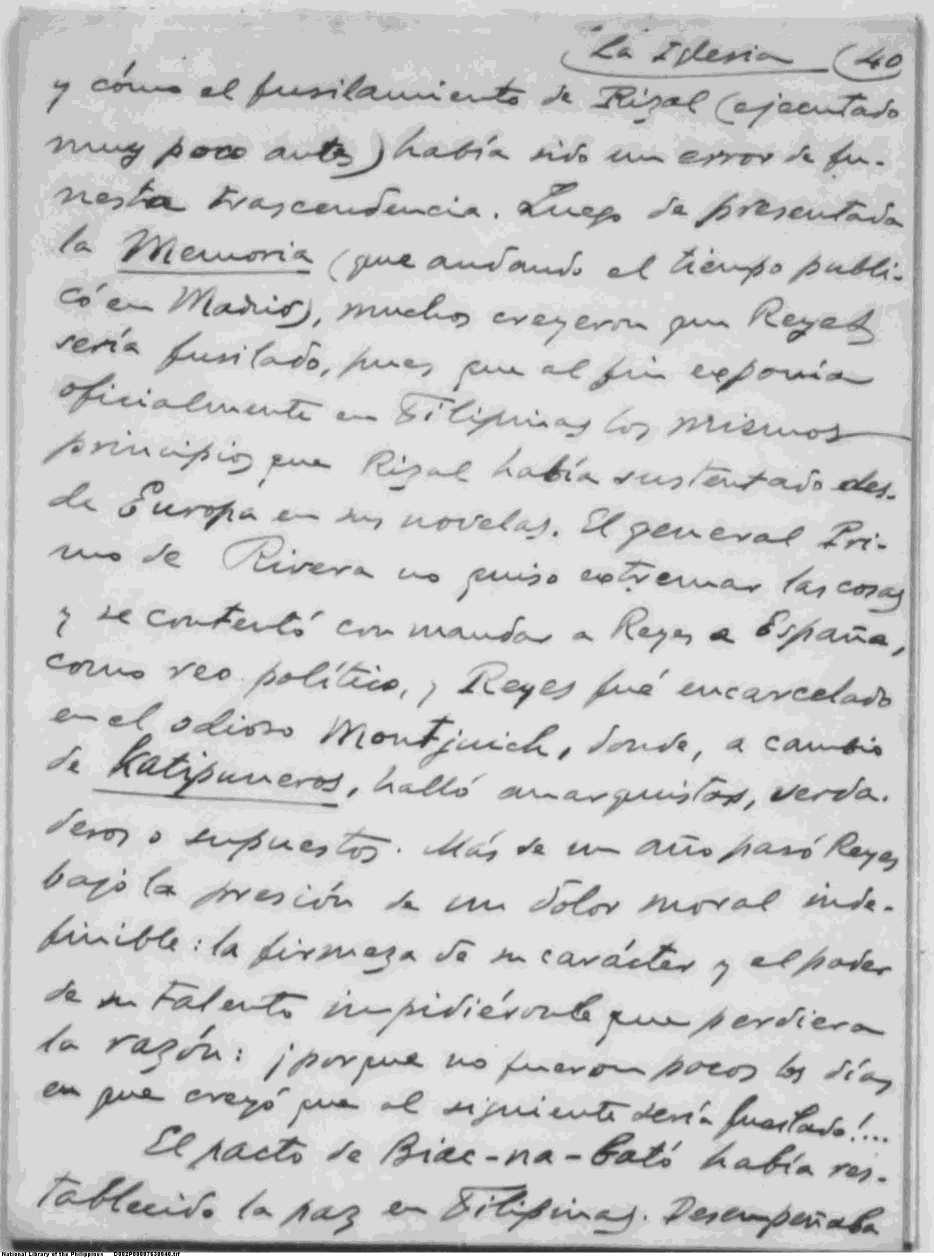 La Iglesia (40
y cómo el fusilamiento de Rizal (ejecutado
muy poco antes) había sido un error de fu-
nesta trascendencia. Luego de presentada
la Memoria (que andando el tiempo publi-
có en Madrid), muchos creyeron que Reyes
sería fusilado, pues que al fin exponía
oficialmente en Filipinas los mismos
principios que Rizal había sustentado des-
de Europa en sus novelas. El general Pri-
mo de Rivera no quiso extremar las cosas
y se contentó con mandar a Reyes a España,
como reo político, y Reyes fué encarcelado
en el odioso Montjuich, donde, a cambio
de Katipuneros, halló anarquistas, verda-
deros o supuestos. Más de un año pasó Reyes
bajo la presión de un dolor moral inde-
finible: la firmeza de su carácter y el poder
de su talento impidiéronle que perdiera
la razón: ¡porque no fueron pocos los días
en que creyó que al siguiente sería fusilado!...
El pacto de Biac-na-bató había res-
tablecido la paz en Filipinas. Desempeñaba
National Library of the Philippines D002P00007630040.tif